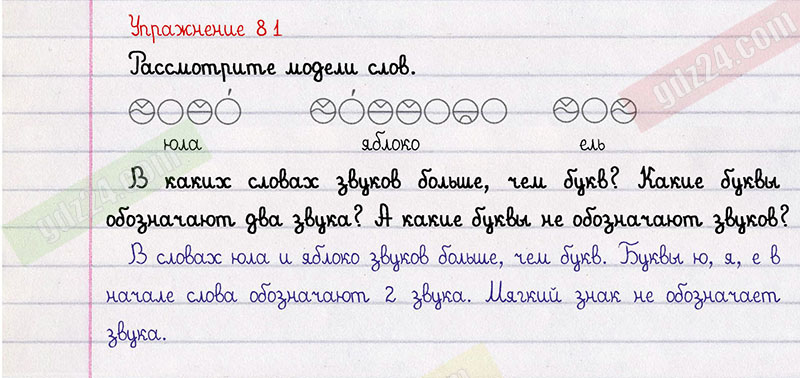 Упражнение 81
Рассмотрите модели слов.
юла яблоко ель
В каких словах звуков больше, чем букв? Какие буквы
обозначают два звука? А какие буквы не обозначают звуков?
В словах юла и яблоко звуков больше, чем букв. Буквы ю, я, е в
начале слова обозначают 2 звука. Мягкий знак не обозначает
звука.
gdz24.com
gdz24.com